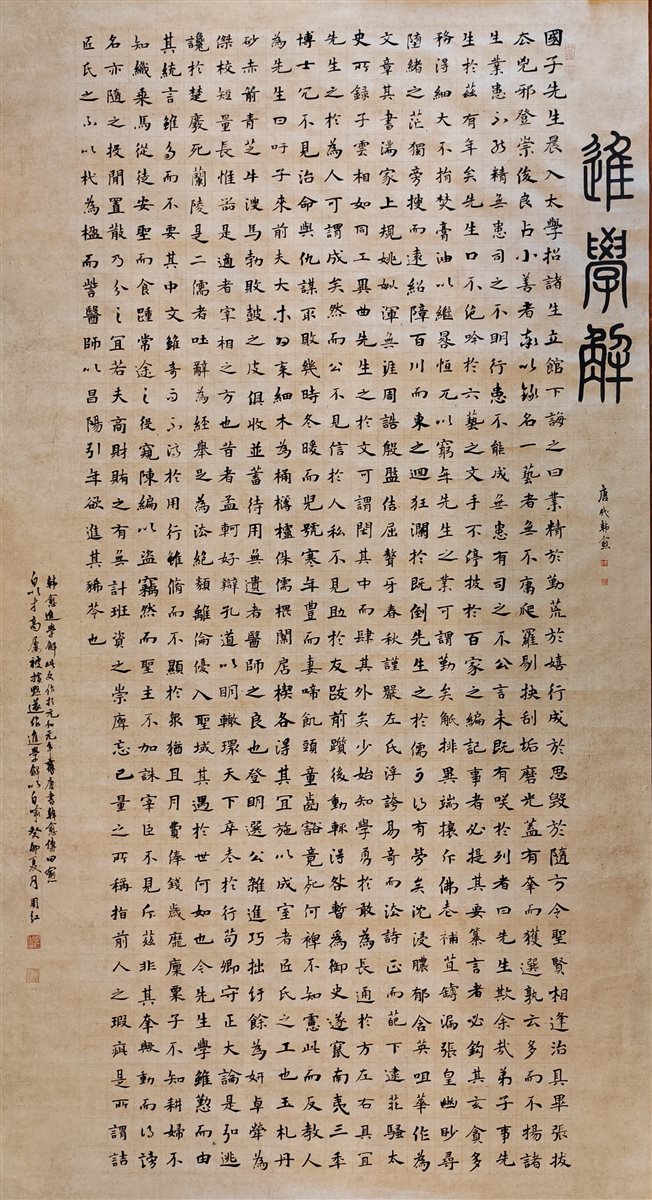 進學解
唐代韓愈
國子先生晨入太學招諸生立館下誨之曰業精於勤荒於嬉行成於思毀於隨方今聖賢相逢治具畢張拔
去兇邪登崇俊良占小善者率以錄名一藝者無不庸爬羅剔抉刮垢磨光蓋有幸而獲選孰云多而不揚諸
生業患不能精無患司之不明行患不能成無患有司之不公言未既有咲於列者曰先生欺余哉弟子事先
生於茲有年矣先生口不絕吟於六藝之文手不停披於百家之編記事者必提其要纂言者必鉤其玄貪多
務得細大不捐焚膏油以繼晷恒兀以窮年先生之業可謂勤矣觝排異端攘斥佛老補苴罅漏張皇幽眇尋
墜緒之茫獨旁搜而遠紹障百川而東之迴狂瀾於既倒先生之於儒可謂有勞矣沈浸醲郁含英咀華作為
文章其書滿家上規姚姒渾無涯周誥殷盤佶屈聱牙春秋謹嚴左氏浮誇易奇而法詩正而葩下逮莊騷太
史所錄子雲相如同工異曲先生之於文可謂閎其中而肆其外矣少始知學勇於敢為長通於方左右具宜
先生之於為人可謂成矣然而公不見信於人私不見助於友跋前躓後動輒得咎暫為御史遂竄南夷三年
博士冗不見治命與仇謀取敗幾時冬暖而兒號寒年豐而妻啼飢頭童齒豁竟死何裨不知慮此而反教人
為先生曰吁子來前夫大木為杗細木為桷欂櫨侏儒椳闑扂楔各得其宜施以成室者匠氏之工也玉札丹
砂赤箭青芝牛溲馬勃敗鼓之皮俱收並蓄待用無遺者醫師之良也登明選公雜進巧拙紆餘為妍卓犖為
傑校短量長惟器是適者宰相之方也昔者孟軻好辯孔道以明轍環天下卒老於行荀卿守正大論是弘逃
讒於楚廢死蘭陵是二儒者吐辭為經舉足為法絕類離倫優入聖域其遇於世何如也今先生學雖勤而由
其統言雖多而不要其中文雖奇而不濟於用行雖脩而不顯於眾猶且月費俸錢歲靡廩粟子不知耕婦不
知織乘馬從徒安坐而食踵常途之促窺陳編以盜竊然而聖主不加誅宰臣不見斥茲非其幸歟動而得謗
名亦隨之投閒置散乃分之宜若夫商財賄之有無計班資之崇庳忘己量之所稱指前人之瑕疵是所謂詰
匠氏之不以杙為楹而訾醫師以昌陽引年欲進其豨苓也
韓愈進學解此文作於元和元年舊唐書韓愈傳曰愈
自以才高屢被擯黜遂作進學解以自喻癸卯夏月周红